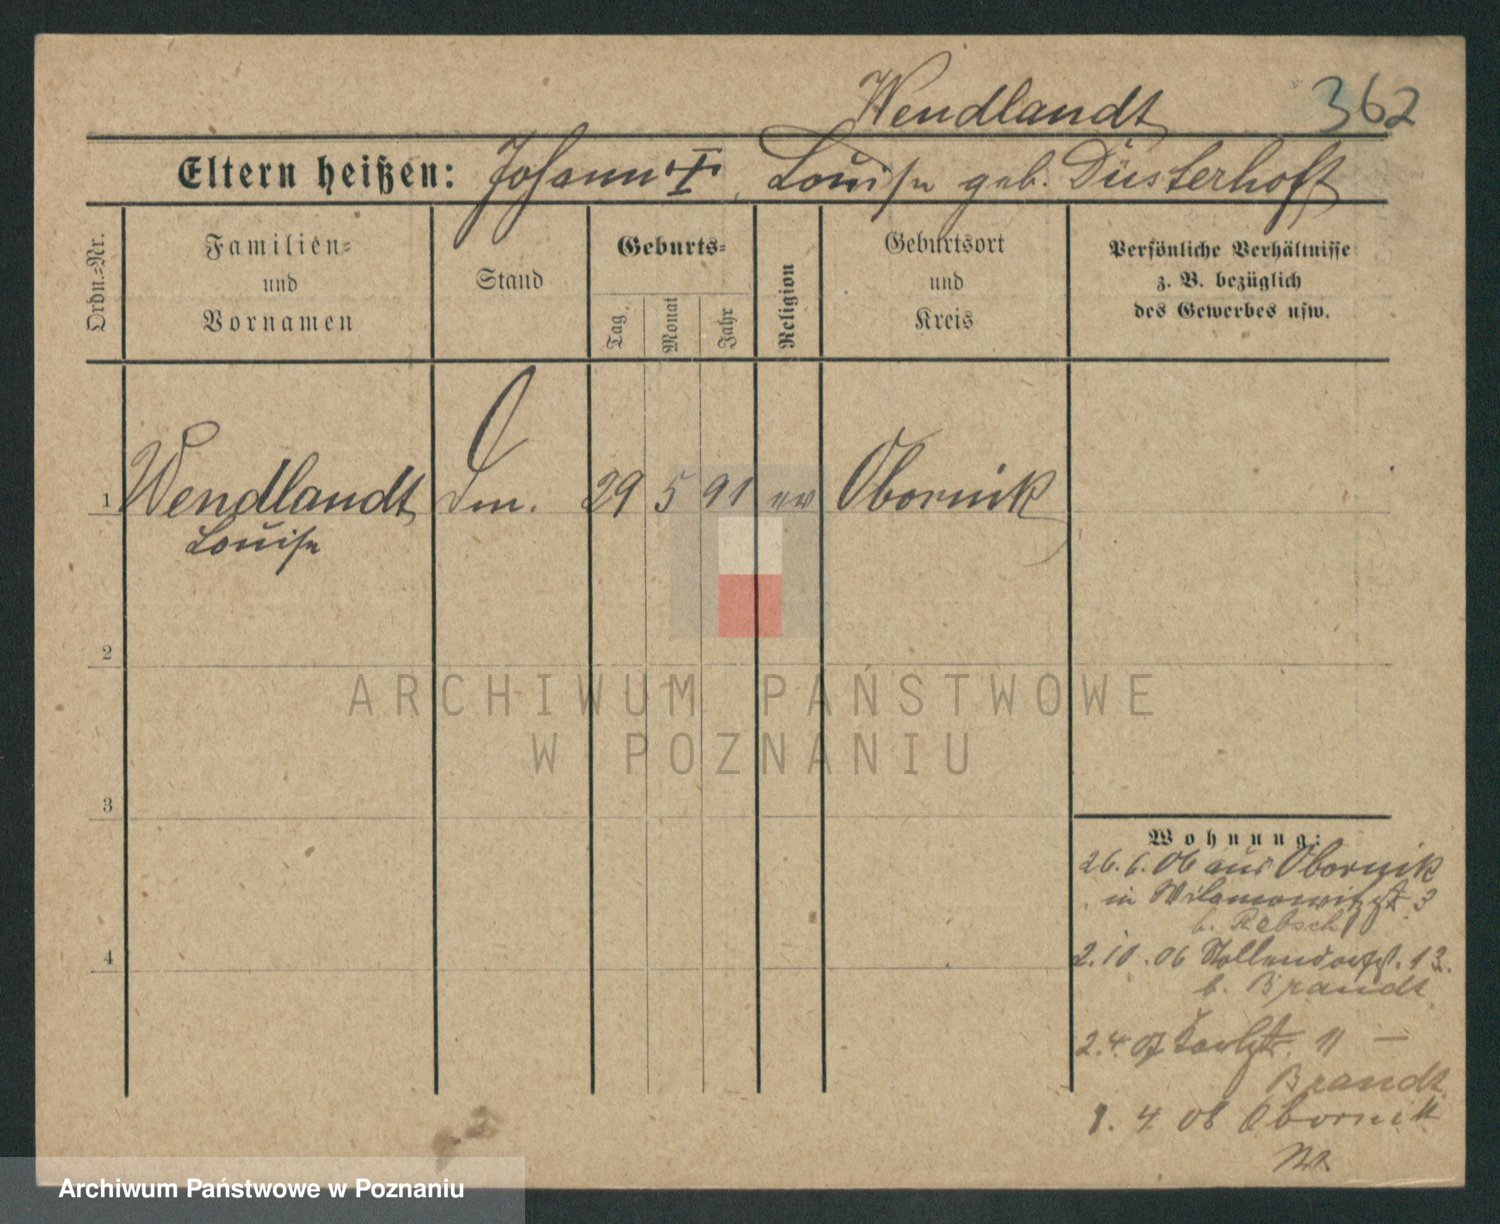 Wendlandt 362
Eltern heißen: Johann †, Louise geb. Düsterhoft
Ordn.=Nr.
Familien=
und
Vornamen
Stand
Geburts=
Tag
Monat
Jahr
Religion
Geburtsort
und
Kreis
Persönliche Verhältnisse
z. B. bezüglich
des Gewerbes usw.
1 Wendlandt 29 5 91 ev Obornik
Louise
2
ARCHIWUM PAŃSTWOWE
W POZNANIU
3
4
Wohnung:
26. 6. 06 aus Obornik
in 3
b.
2. 10. 06 Nollendorfst. 13.
b. Brandt
2. 4. 07 11 —
Brandt
1. 4. 08 Obornik
Archiwum Państwowe w Poznaniu